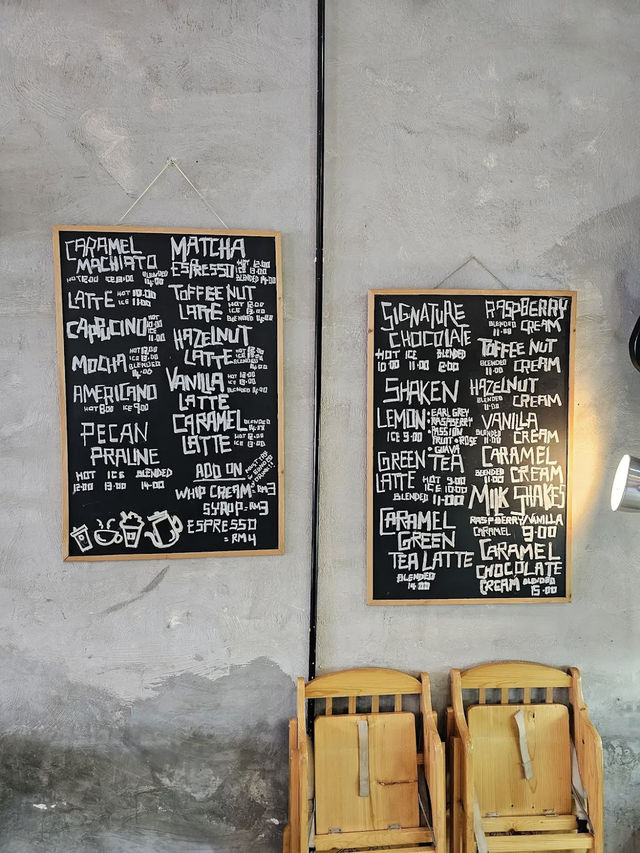 CARAMEL
MACHIATO BLENDED
HOT 12.00 ICE 13.00 14.00
LATTE HOT 10.00
ICE 11.00
CAPPUCINO HOT 10.00
ICE 11.00
MOCHA HOT 12.00
ICE 13.00
BLENDED
14.00
AMERICANO
HOT 8.00 ICE 9.00
PECAN
PRALINE
HOT ICE BLENDED
12.00 13.00 14.00
MATCHA
ESPRESSO HOT 12.00
ICE 13.00
BLENDED 14.00
TOFFEE NUT
LATTE HOT 12.00
ICE 13.00
BLENDED 14.00
HAZELNUT
LATTE
BLENDED
VANILLA HOT 12.00
ICE 13.00
LATTE BLENDED 14.00
CARAMEL BLENDED
14.00
LATTE HOT 12.00
ICE 13.00
ADD ON
WHIP CREAM = RM3
SYRUP = RM3
ESPRESSO
= RM4
SIGNATURE
CHOCOLATE
HOT ICE BLENDED
10.00 11.00 12.00
SHAKEN
LEMON • EARL GREY
• RASPBERRY
ICE 9.00 • PASSION
FRUIT • ROSE
• GUAVA
GREEN TEA
LATTE HOT 9.00
ICE 10.00
BLENDED 11.00
CARAMEL
GREEN
TEA LATTE
BLENDED
14.00
RASPBERRY
BLENDED CREAM
11.00
TOFFEE NUT
BLENDED CREAM
11.00
HAZELNUT
BLENDED CREAM
11.00
VANILLA
BLENDED CREAM
11.00
CARAMEL
BLENDED CREAM
11.00
MILK SHAKES
RASPBERRY/VANILLA
CARAMEL 9.00
CARAMEL
CHOCOLATE
CREAM BLENDED
15.00